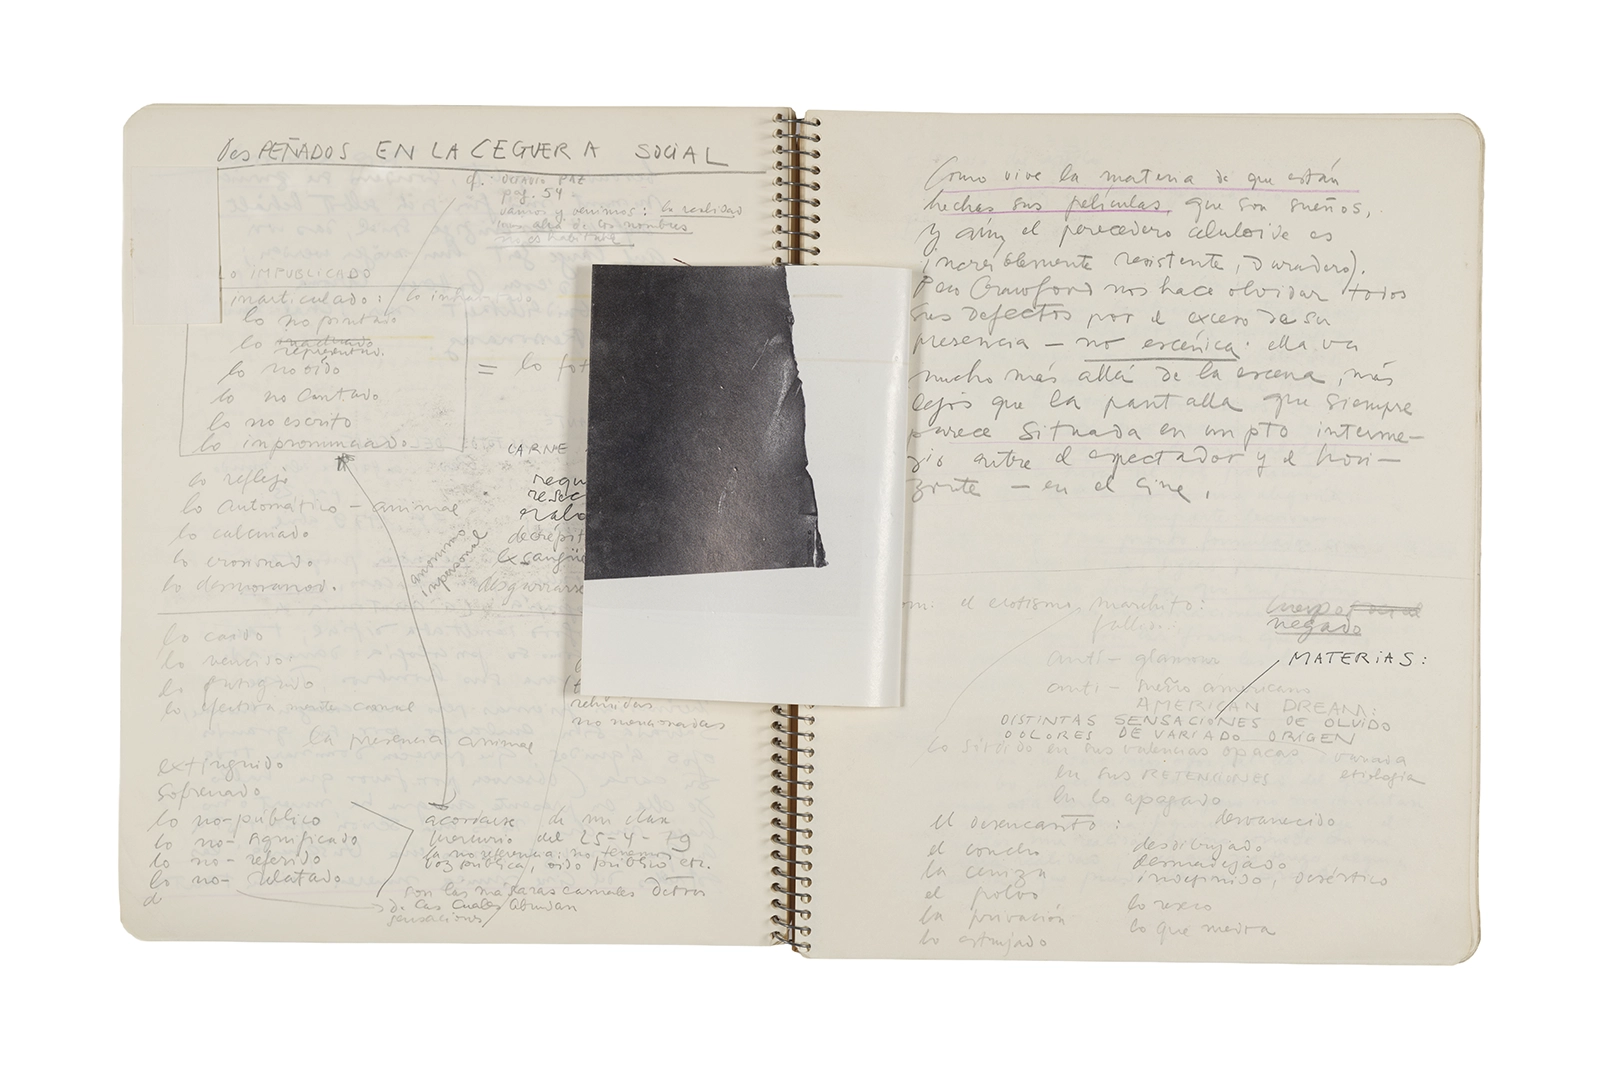 DesPEÑADOS EN LA CEGUERA SOCIAL
cf. OCTAVIO PAZ
pag. 54
vamos y venimos: la realidad
más allá de los nombres
no es habitable
lo IMPUBLICADO
inarticulado: lo inhabitado
lo no pintado
lo
representado.
lo no oído
lo no cantado
lo no escrito
lo impronunciado
= lo fot
CARNE
decrépit
exsangüe
lo reflejo
lo automático - animal
lo calcinado
lo erosionado
lo desmoronado.
anónimo
impersonal
lo caído
lo vencido
lo
lo
no mencionadas
la presencia animal
extinguido
sofrenado
lo no-público
lo no-significado
lo no-referido
lo no-relatado
acordarse de mi clase
Mercurio del 25-4-79
la no referencia: no tenemos
voz pública, oído público etc.
son las máscaras carnales detrás
de las cuales abundan
sensaciones
Como vive la materia de que están
hechas sus películas, que son sueños,
y aun el perecedero celuloide es
increíblemente resistente, duradero).
Pero Crawford nos hace olvidar todos
sus defectos por el exceso de su
presencia - no escénica: ella va
mucho más allá de la escena, más
lejos que la pantalla que siempre
parece situada en un pto interme-
dio entre el espectador y el hori-
zonte - en el cine.
el erotismo marchito:
fallido:
cuerpo
negado
anti-glamour
MATERIAS:
anti-sueño americano
AMERICAN DREAM:
DISTINTAS SENSACIONES DE OLVIDO
DOLORES DE VARIADO ORIGEN
lo sórdido en sus valencias opacas
variada
etiología
en sus RETENCIONES
en lo apagado
el desencanto:
desvanecido
el concho
desdibujado
la ceniza
desmadejado
indefinido, desértico
el polvo
la privación
lo reseco
lo estrujado
lo que medra